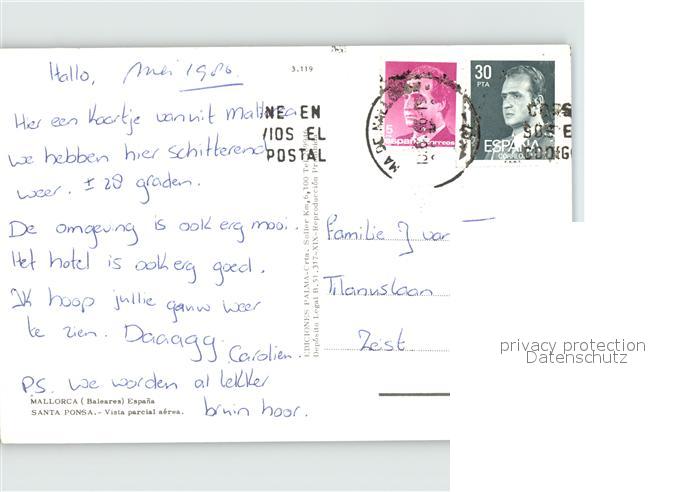 Hallo, mei 1986.
3.119
Hier een kaartje vanuit Mallorca
we hebben hier schitterend
weer. ± 28 graden.
De omgeving is ook erg mooi.
Het hotel is ook erg goed.
Ik hoop jullie gauw weer
te zien. Daaagg.
Carolien.
P.S. we worden al lekker
bruin hoor.
MALLORCA (Baleares) España
SANTA PONSA.- Vista parcial aérea.
EDICIONES PALMA-Crta. Soller Km, 6,100
Depósito Legal B.51.317-XIX-Reproducción
NE EN
/IOS EL
POSTAL
MA DE MALLOR
5
España correos
30
PTA
ESPAÑA
CORREOS
Familie J van
Titanuslaan
Zeist
privacy protection
Datenschutz